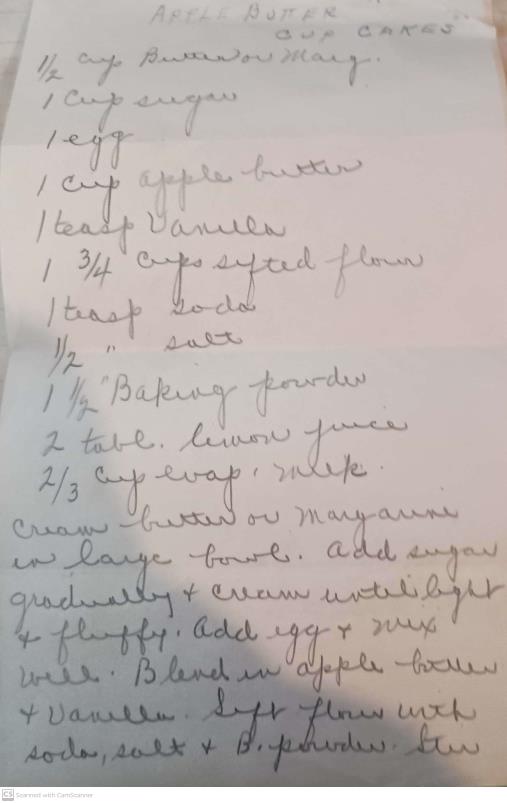 APPLE BUTTER
CUP CAKES
1/2 cup Butter or Marg.
1 Cup sugar
1 egg
1 cup apple butter
1 teasp Vanilla
1 3/4 cups sifted flour
1 teasp soda
1/2 " salt
1 1/2 " Baking powder
2 table. lemon juice
2/3 cup evap. milk.
Cream butter or Margarine
in large bowl. Add sugar
gradually & cream until light
& fluffy. Add egg & mix
well. Blend in apple butter
& Vanilla. Sift flour with
soda, salt & B. powder. Stir
CS Scanned with CamScanner